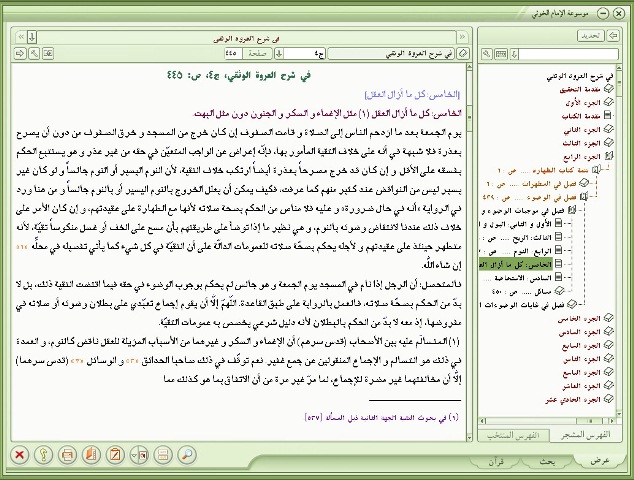 موسوعة الإمام الخوئي
في شرح العروة الوثقى
في شرح العروة الوثقى
ج٤
صفحة
٤٤٥
في شرح العروة الوثقى، ج٤، ص: ٤٤٥
[الخامس: كل ما أزال العقل]
الخامس: كل ما أزال العقل (١) مثل الإغماء و السكر و الجنون دون مثل البهت.
يوم الجمعة بعد ما ازدحم الناس إلى الصلاة و قامت الصفوف إن كان خرج من المسجد و خرق الصفوف من دون أن يصرح
بعذرة فلا شبهة في أنه على خلاف التقية المأمور بها، فإنّه إعراض عن الواجب المتعيّن في حقه من غير عذر و هو يستتبع الحكم
بفسقه على الأقل و إن كان قد خرج مصرحاً بعذرة أيضاً ارتكب خلاف التقية، لأن النوم اليسير أو النوم جالساً و لو كان غير
يسير ليس من النواقض عند كثير منهم كما عرفت، فكيف يمكن أن يعلل الخروج بالنوم اليسير أو بالنوم جالساً و من هنا ورد
في الرواية «أنه في حال ضرورة» و عليه فلا مناص من الحكم بصحة صلاته لأنها مع الطهارة على عقيدتهم، و إن كان الأمر على
خلاف ذلك عندنا لانتقاض وضوئه بالنوم، و هي نظير ما إذا توضأ على طريقتهم بأن مسح على الخف أو غسل منكوساً تقيّة، لأنه
متطهر حينئذ على عقيدتهم و لأجله يحكم بصحّة صلاته للعمومات الدالّة على أن التقيّة في كل شيء كما يأتي تفصيله في محلّه
إن شاء اللّه.
فالمتحصل: أن الرجل إذا نام في المسجد يوم الجمعة و هو جالس لم يحكم بوجوب الوضوء في حقه فيما اقتضت التقية ذلك، بل لا
بدّ من الحكم بصحّة صلاته، فالعمل بالرواية على طبق القاعدة. اللّهمّ إلّا أن يقوم إجماع تعبّدي على بطلان وضوئه أو صلاته في
مفروضها، إذ معه لا بدّ من الحكم بالبطلان لأنه دليل شرعي يخصص به عمومات التقيّة.
(١) المتسالم عليه بين الأصحاب (قدس سرهم) أن الإغماء و السكر و غيرهما من الأسباب المزيلة للعقل ناقض كالنوم، و العمدة
في ذلك هو التسالم و الإجماع المنقولين عن جمع غفير. نعم توقّف في ذلك صاحبا الحدائق و الوسائل (قدس سرهما)
إلّا أن مخالفتهما غير مضرة للإجماع، لما مرّ غير مرة من أن الاتفاق بما هو كذلك مما
في بحوث التقية الجهة الثانية قبل المسألة [٥٣٧]
تحديد
في شرح العروة الوثقى
مقدمة التحقيق
الجزء الأول
مقدمة الكتاب
الجزء الثاني
الجزء الثالث
الجزء الرابع
تتمة كتاب الطهارة ..... ص : ٦
فصل في المطهرات ..... ص : ٦
فصل في الوضوء ..... ص : ٤٣٩
فصل في موجبات الوضوء و
الأول و الثاني: البول و ا
الثالث: الريح ..... ص :
الرابع: النوم ..... ص :
الخامس: كل ما أزال الع
السادس: الاستحاضة ...
مسائل ..... ص : ٤٥٠
فصل في غايات الوضوءات ا
الجزء الخامس
الجزء السادس
الجزء السابع
الجزء الثامن
الجزء التاسع
الجزء العاشر
الجزء الحادي عشر
الفهرس المشجر
الفهرس المنتخب
عرض
بحث
قرآن